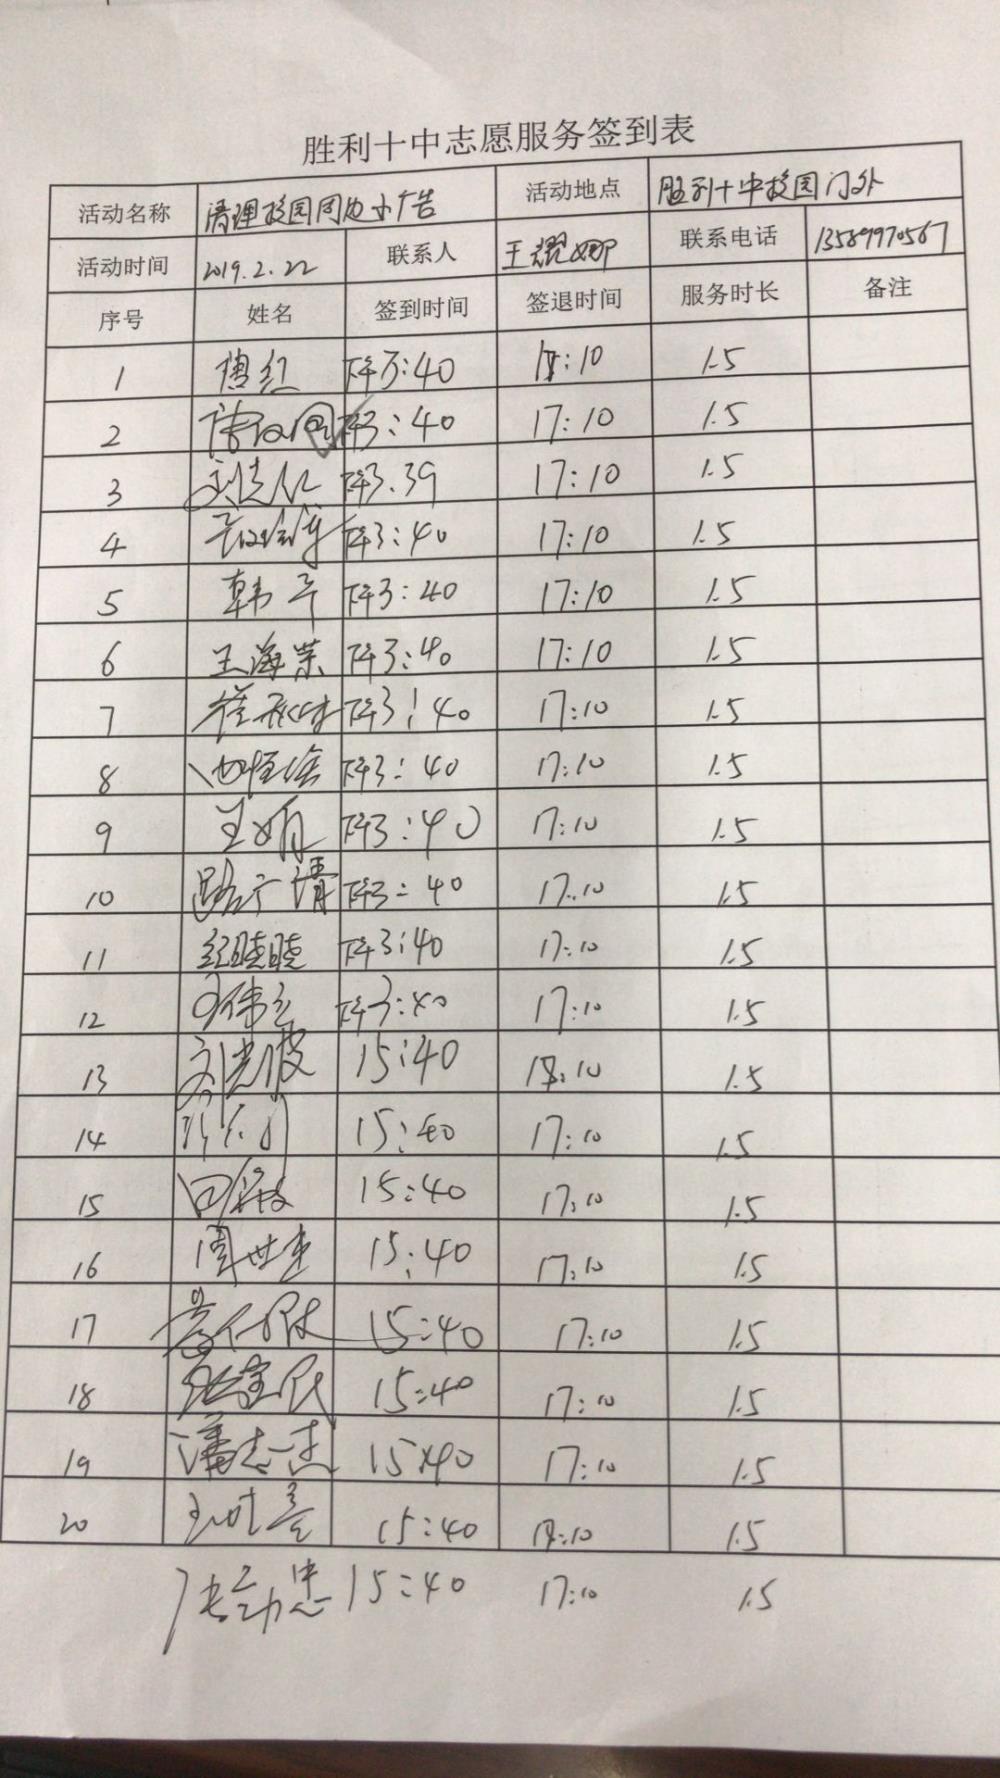 胜利十中志愿服务签到表
活动名称 清理校园周边小广告 活动地点 胜利十中校园门外
活动时间 2019.2.22 联系人 王耀娜 联系电话 13589970567
序号 姓名 签到时间 签退时间 服务时长 备注
1 下午3:40 17:10 1.5
2 下午3:40 17:10 1.5
3 下午3.39 17:10 1.5
4 下午3:40 17:10 1.5
5 韩平 下午3:40 17:10 1.5
6 王海荣 下午3:40 17:10 1.5
7 下午3:40 17:10 1.5
8 下午3:40 17:10 1.5
9 王娟 下午3:40 17:10 1.5
10 路广清 下午3:40 17:10 1.5
11 纪晓晓 下午3:40 17:10 1.5
12 下午3:40 17:10 1.5
13 刘光波 15:40 17:10 1.5
14 15:40 17:10 1.5
15 15:40 17:10 1.5
16 周世杰 15:40 17:10 1.5
17 15:40 17:10 1.5
18 15:40 17:10 1.5
19 潘志杰 15:40 17:10 1.5
20 15:40 17:10 1.5
15:40 17:10 1.5